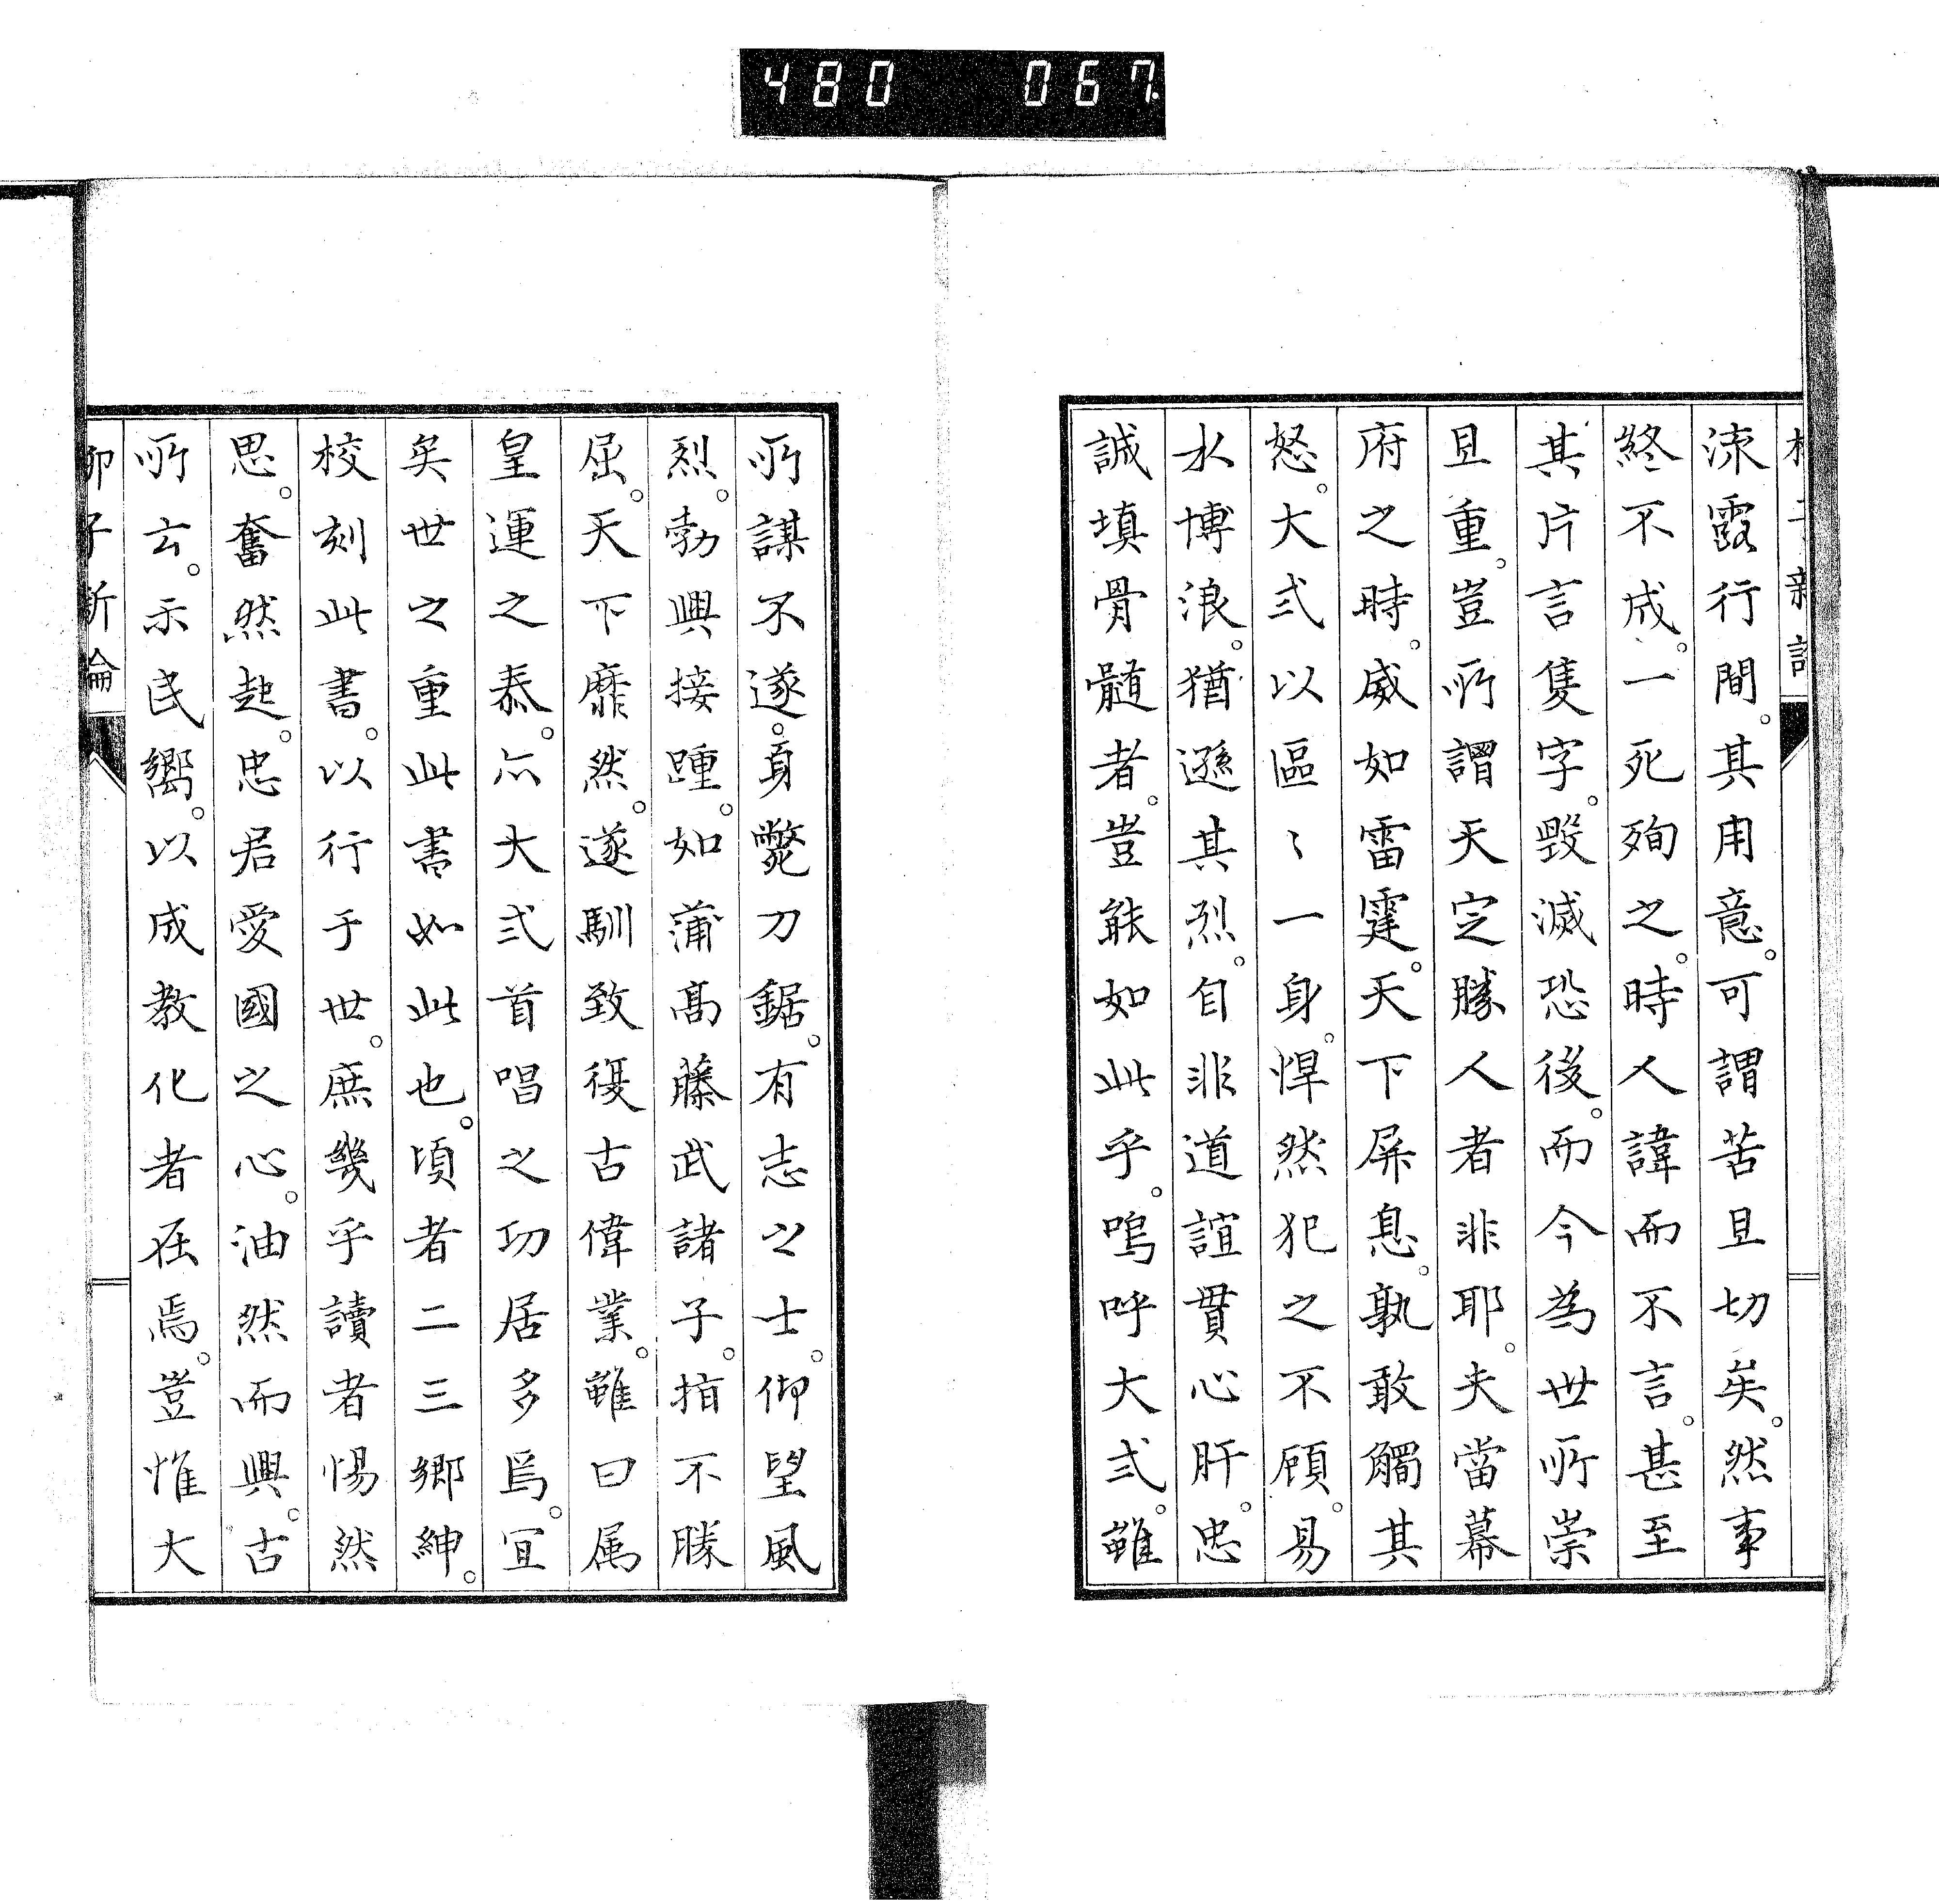 480 067
柳子新論
涑露行間。其用意。可謂苦且切矣。然事
終不成。一死殉之。時人諱而不言。甚至
其片言隻字。毀滅恐後。而今為世所崇
且重。豈所謂天定勝人者非耶。夫當幕
府之時。威如雷霆。天下屏息。孰敢觸其
怒。大弍以區〻一身。悍然犯之不顧。易
水博浪。猶遜其烈。自非道誼貫心肝。忠
誠填骨髓者。豈能如此乎。嗚呼大弍。雖
所謀不遂。身斃刀鋸。有志之士。仰望風
烈。勃興接踵。如蒲高藤武諸子。指不勝
屈。天下靡然。遂馴致復古偉業。雖曰属
皇運之泰。亦大弍首唱之功居多焉。宜
矣世之重此書如此也。頃者二三鄉紳。
校刻此書。以行于世。庶幾乎讀者惕然
思。奮然起。忠君愛國之心。油然而興。古
所云。示民嚮。以成教化者在焉。豈惟大
柳子新論